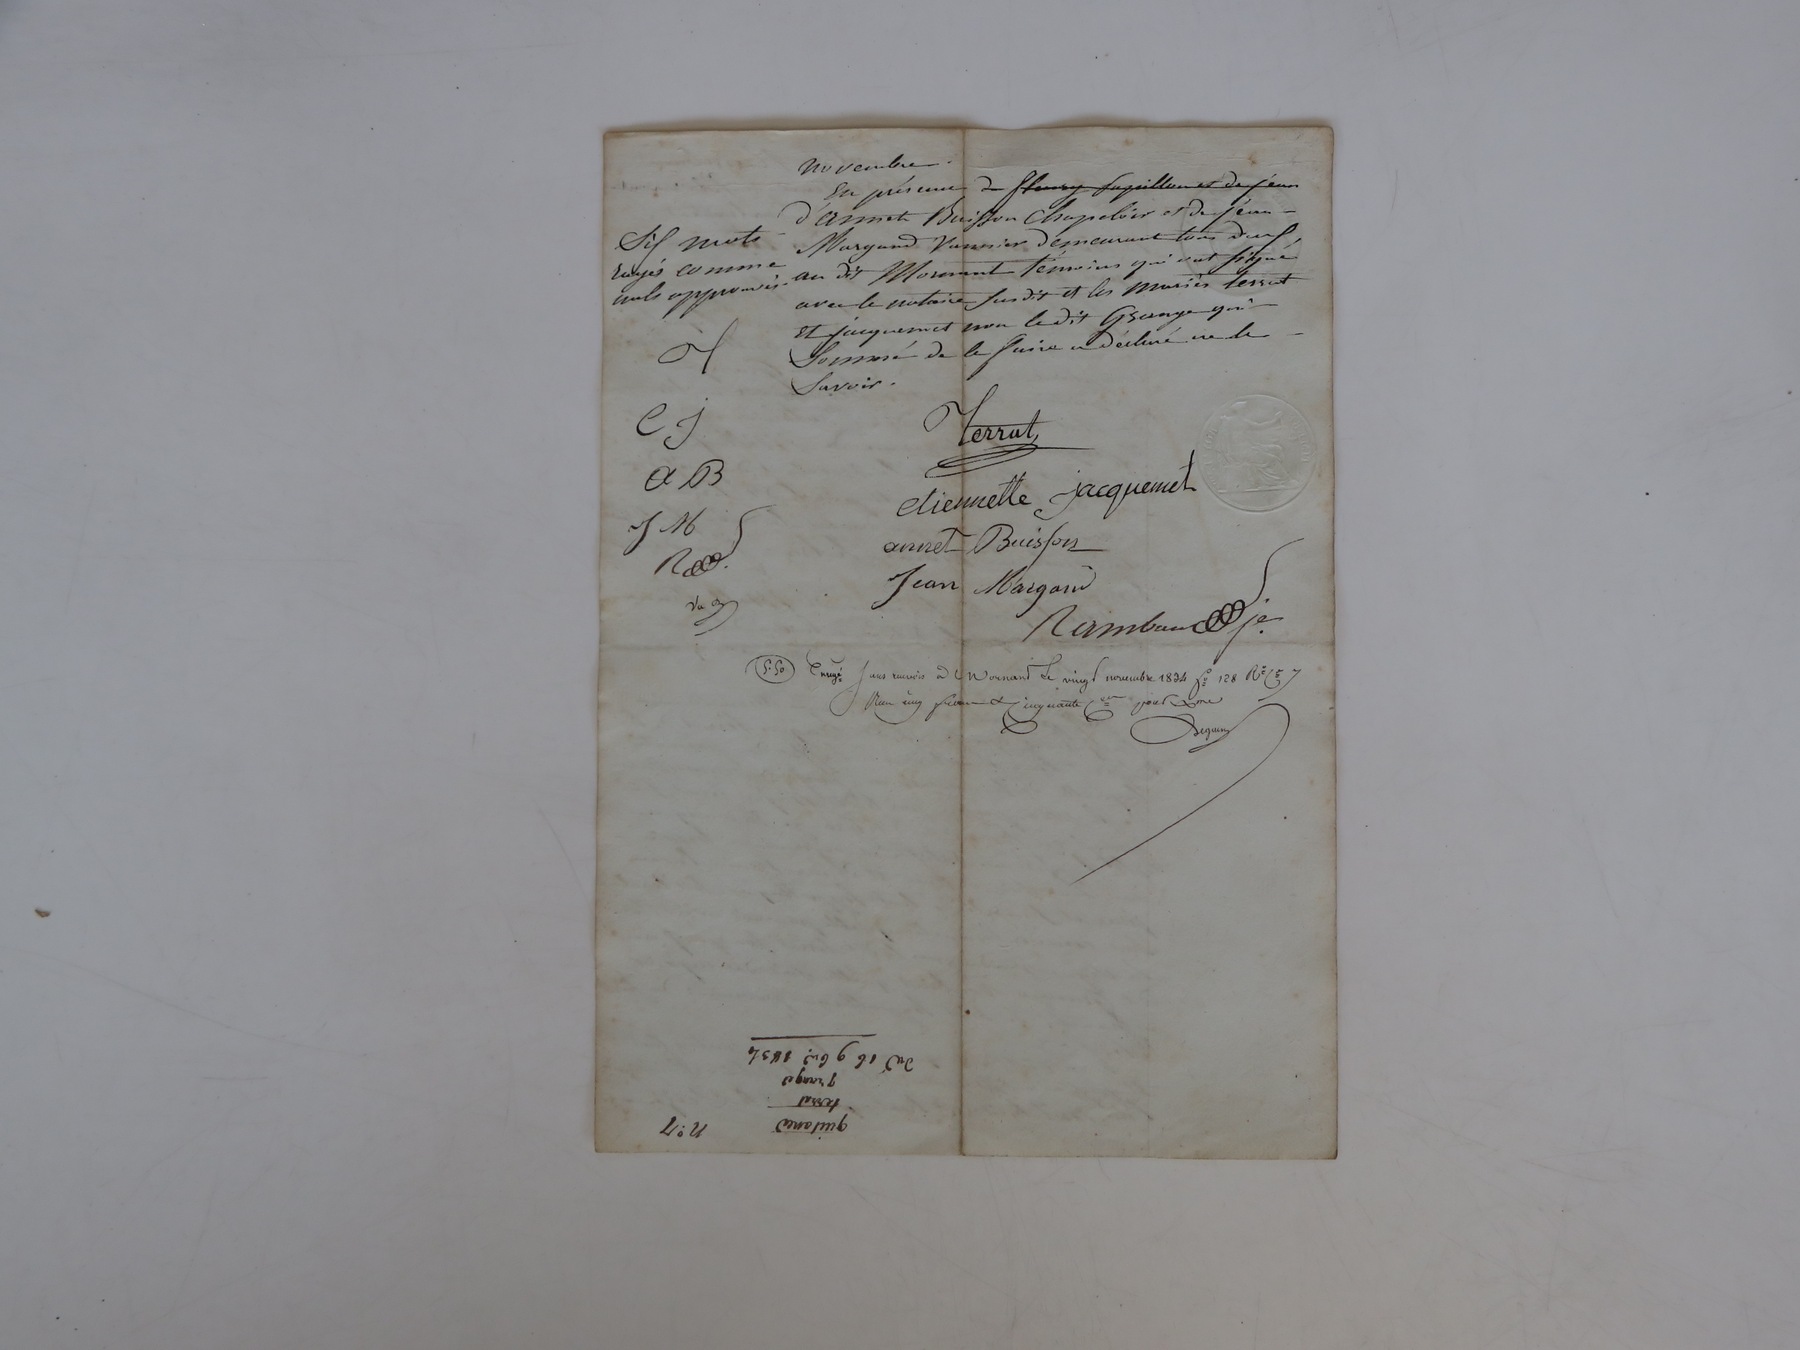 novembre.
En présence de fleury papillon et de jean
d'annet Buisson chapelier et de jean
Margand Vannier demeurant tous deux
au dit Mornant témoins qui ont signé
avec le notaire susdit et les mariés terrat
et jacquemet non le dit Grange qui
Sommé de le faire a déclaré ne le
Savoir.
Six mots
rayés comme
nuls approuvés.
T
E J
a B
J M
R
Terrat
etiennette jacquemet
annet Buisson
Jean Margand
Rambaud je.
5.50 Enregé sans renvois à Mornant le vingt novembre 1834 fo 128 Ro Ce 7
Reçu cinq francs cinquante pour
Seguin
n° 7
quitance
terrat
grange
Du 16 9bre 1834